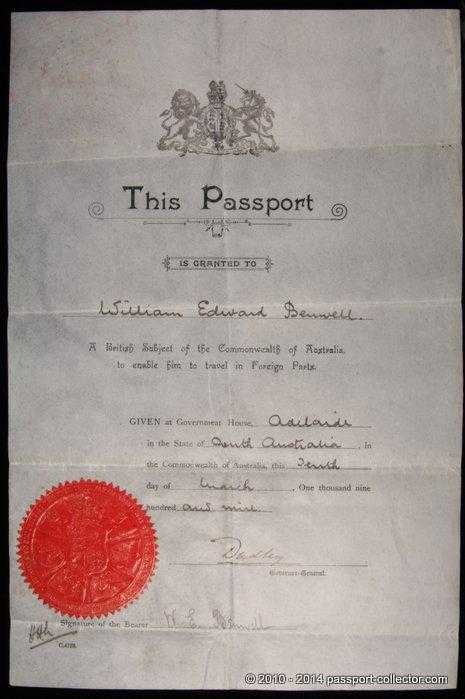 This Passport
IS GRANTED TO
William Edward Benwell.
A British Subject of the Commonwealth of Australia,
to enable him to travel in Foreign Parts.
GIVEN at Government House, Adelaide
in the State of South Australia, in
the Commonwealth of Australia, this Tenth
day of March, One thousand nine
hundred and nine.
Dudley
Governor-General.
Signature of the Bearer W. E. Benwell
© 2010 - 2014 passport-collector.com